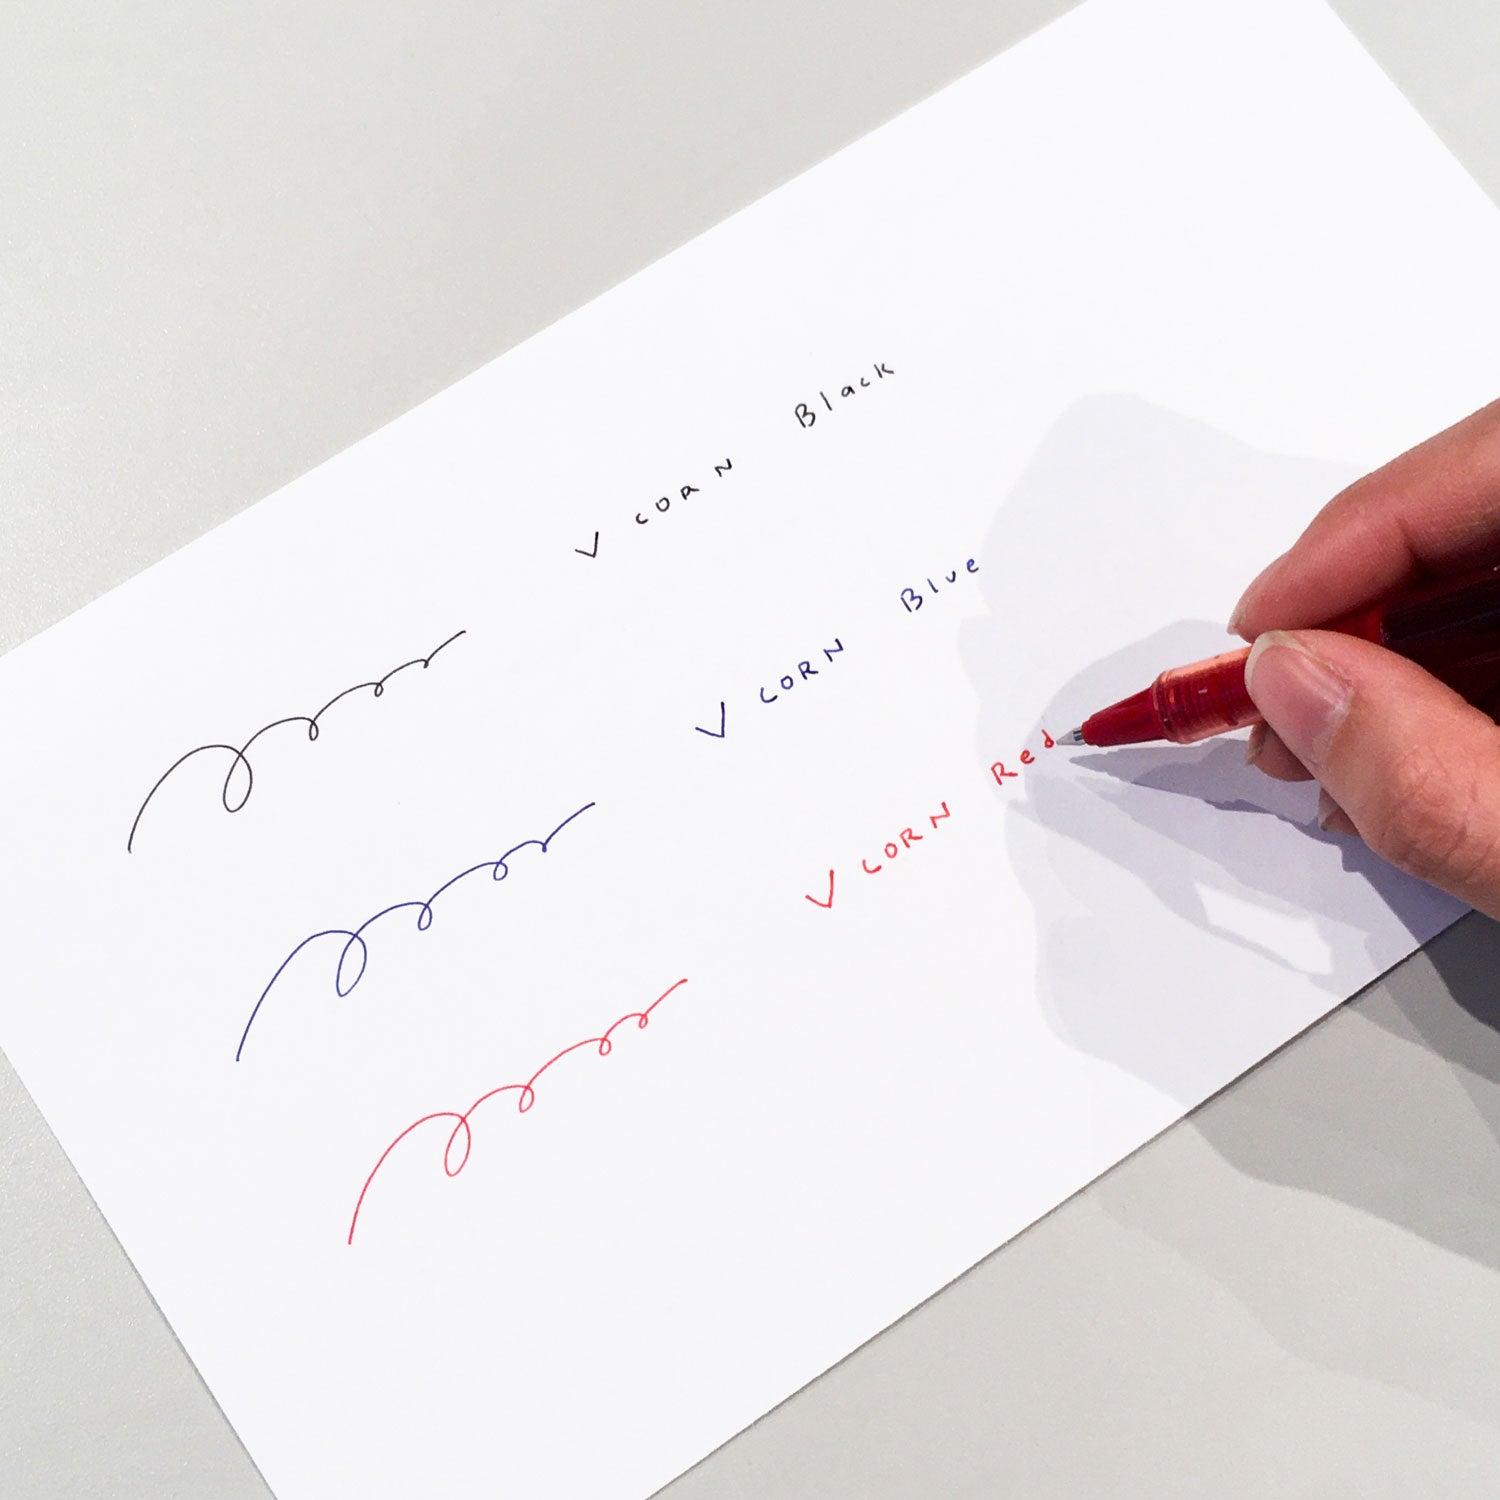 V CORN Black
V CORN Blue
V CORN Red